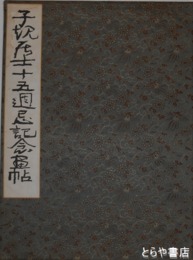 子規居士十五週忌記念画帖
とらや書店